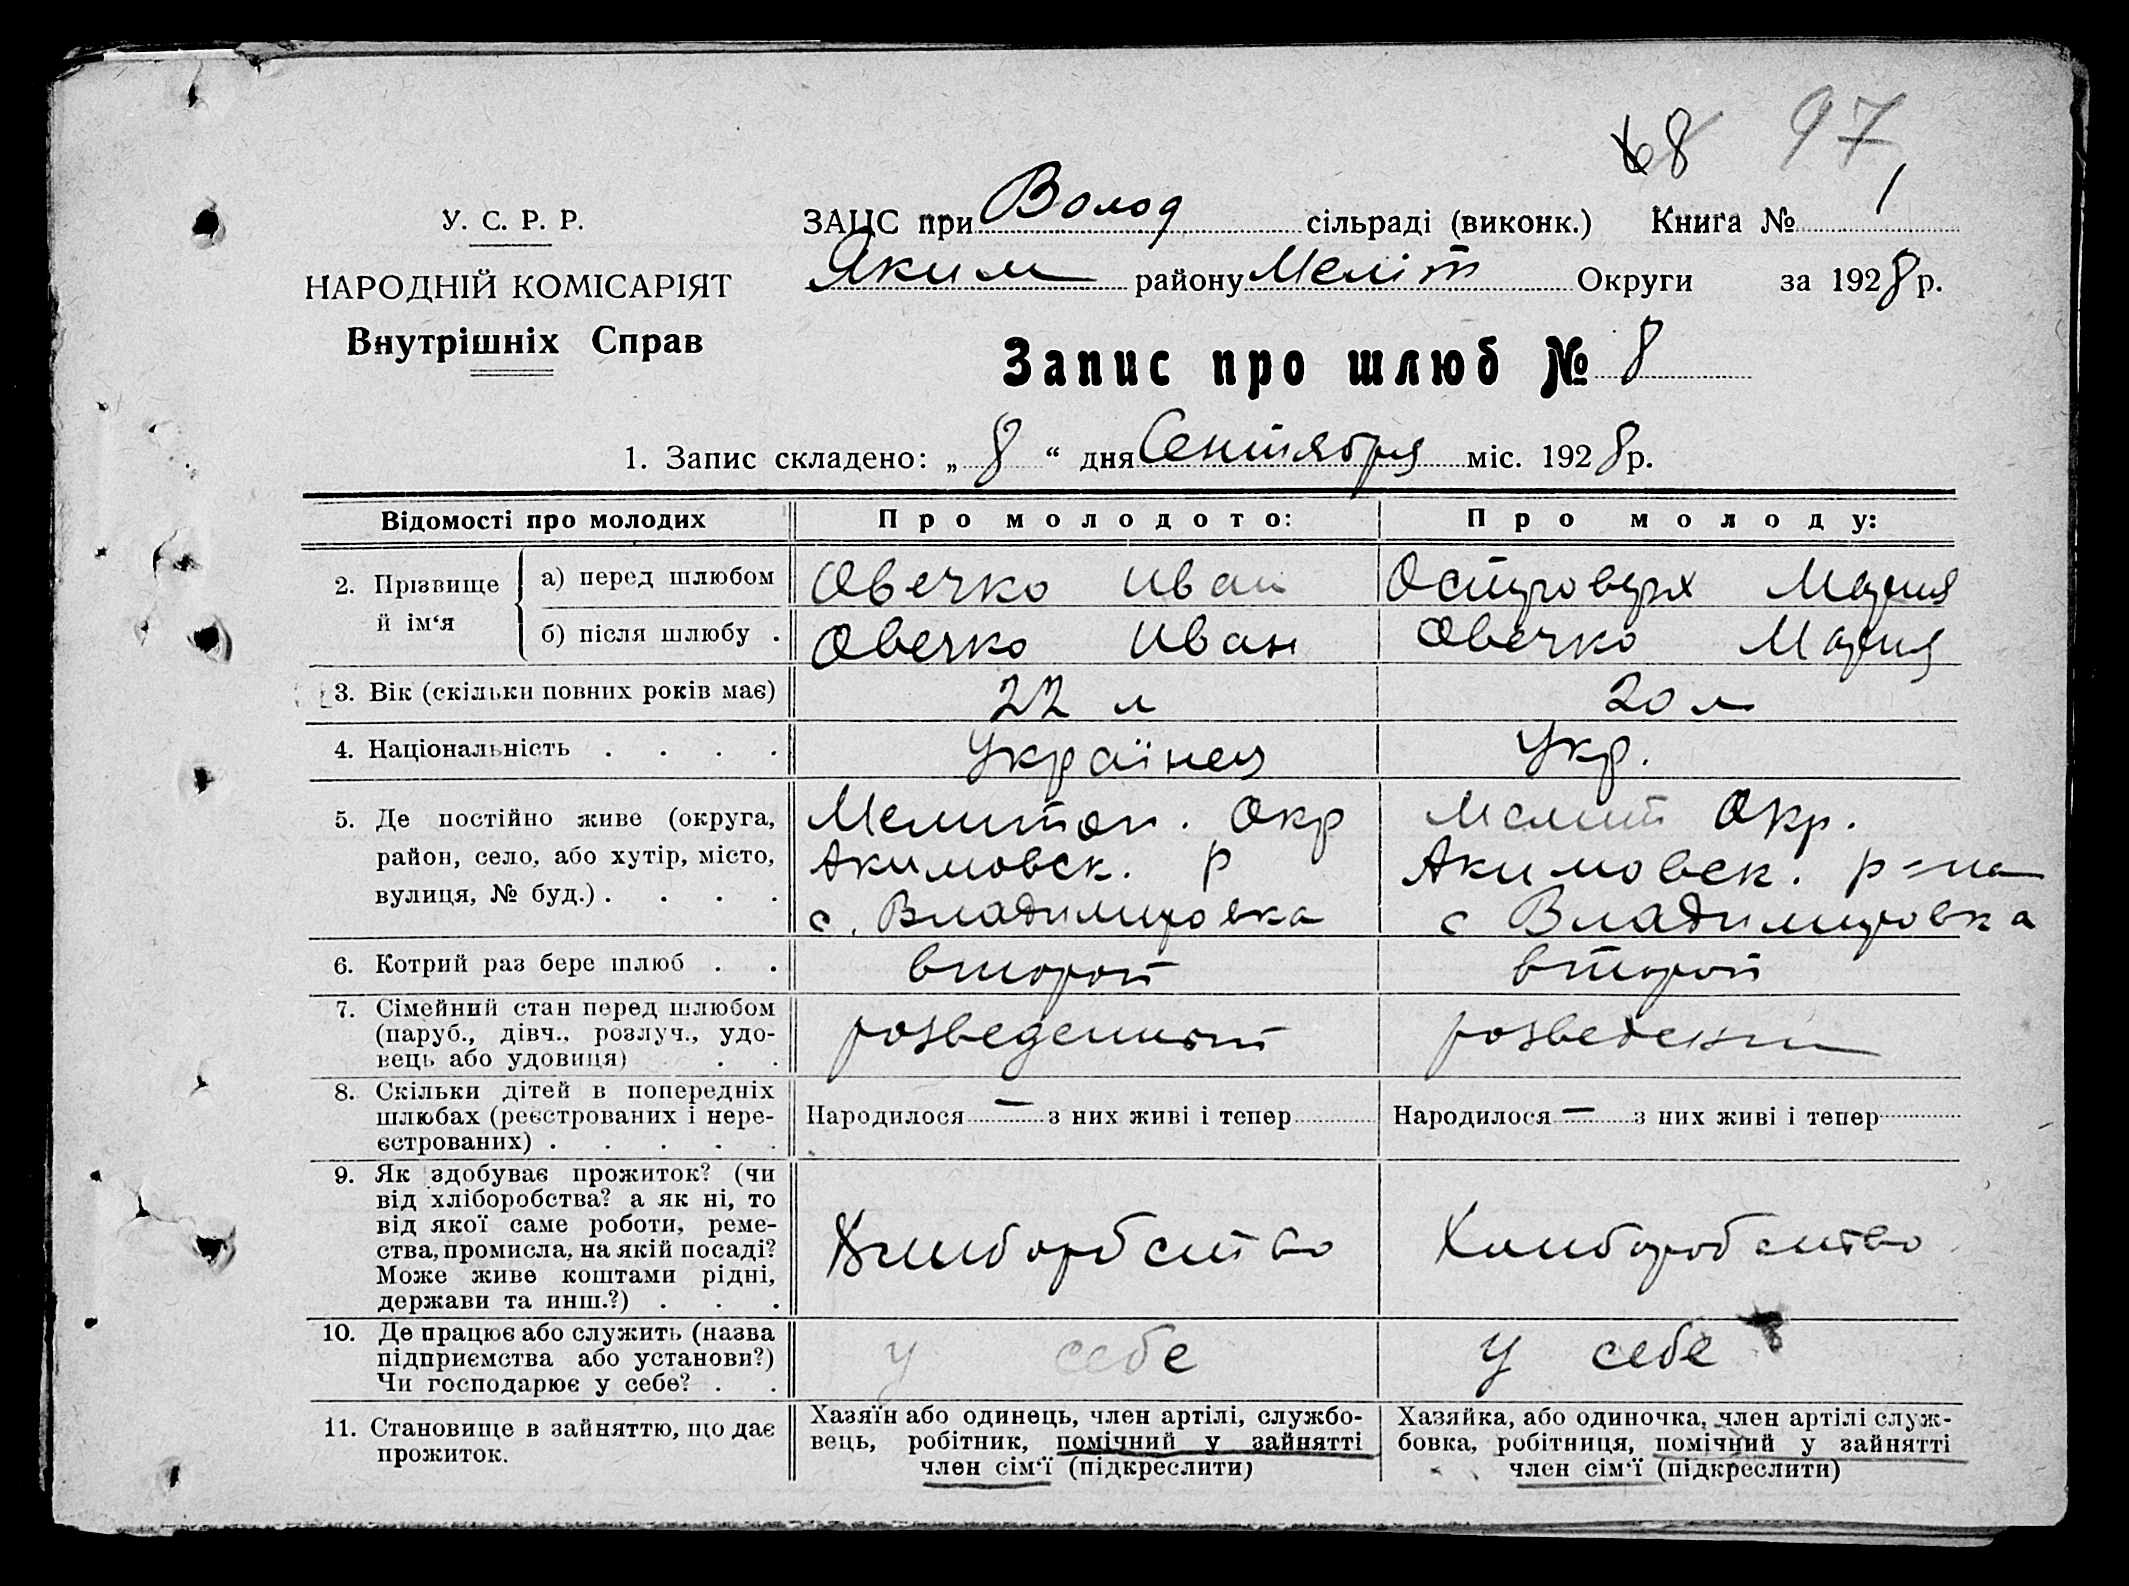 68 97
У. С. Р. Р.
НАРОДНІЙ КОМІСАРІЯТ
Внутрішніх Справ
ЗАЦС при Волод сільраді (виконк.) Книга № 1
Яким району Меліт Округи за 1928 р.
Запис про шлюб № 8
1. Запис складено: „ 8 “ дня Сентября міс. 1928 р.
Відомості про молодих Про молодого: Про молоду:
2. Прізвище й ім‘я
а) перед шлюбом Овечко Иван Островерх Мария
б) після шлюбу . Овечко Иван Овечко Мария
3. Вік (скільки повних років має) 22 л 20 л
4. Національність . . . . Українец Укр.
5. Де постійно живе (округа,
район, село, або хутір, місто,
вулиця, № буд.) . . . .
Мелитоп. Окр
Акимовск. р
с. Владимировка
Мелит Окр.
Акимовск. р-на
с Владимировка
6. Котрий раз бере шлюб . . второй второй
7. Сімейний стан перед шлюбом
(паруб., дівч., розлуч., удо-
вець або удовиця) . .
розведенной розведен
8. Скільки дітей в попередніх
шлюбах (реєстрованих і нере-
єстрованих) . . . . .
Народилося — з них живі і тепер
Народилося — з них живі і тепер
9. Як здобуває прожиток? (чи
від хліборобства? а як ні, то
від якої саме роботи, реме-
ства, промисла, на якій посаді?
Може живе коштами рідні,
держави та инш.?) . . .
Хлиборбство Хлиборобство
10. Де працює або служить (назва
підприємства або установи?)
Чи господарює у себе? . .
у себе у себе
11. Становище в зайняттю, що дає
прожиток.
Хазяїн або одинець, член артілі, службо-
вець, робітник, помічний у зайнятті
член сім‘ї (підкреслити)
Хазяйка, або одиночка, член артілі служ-
бовка, робітниця, помічний у зайнятті
член сім‘ї (підкреслити)